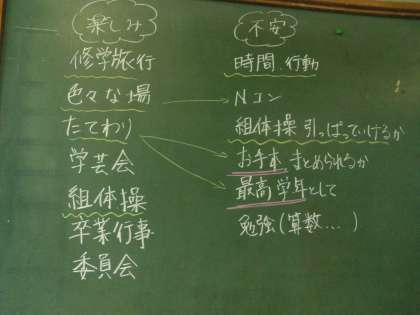 楽しみ
修学旅行
色々な場
たてわり
学芸会
組体操
卒業行事
委員会
不安
時間、行動
Nコン
組体操 引っぱっていけるか
お手本、まとめられるか
最高学年として
勉強(算数...)